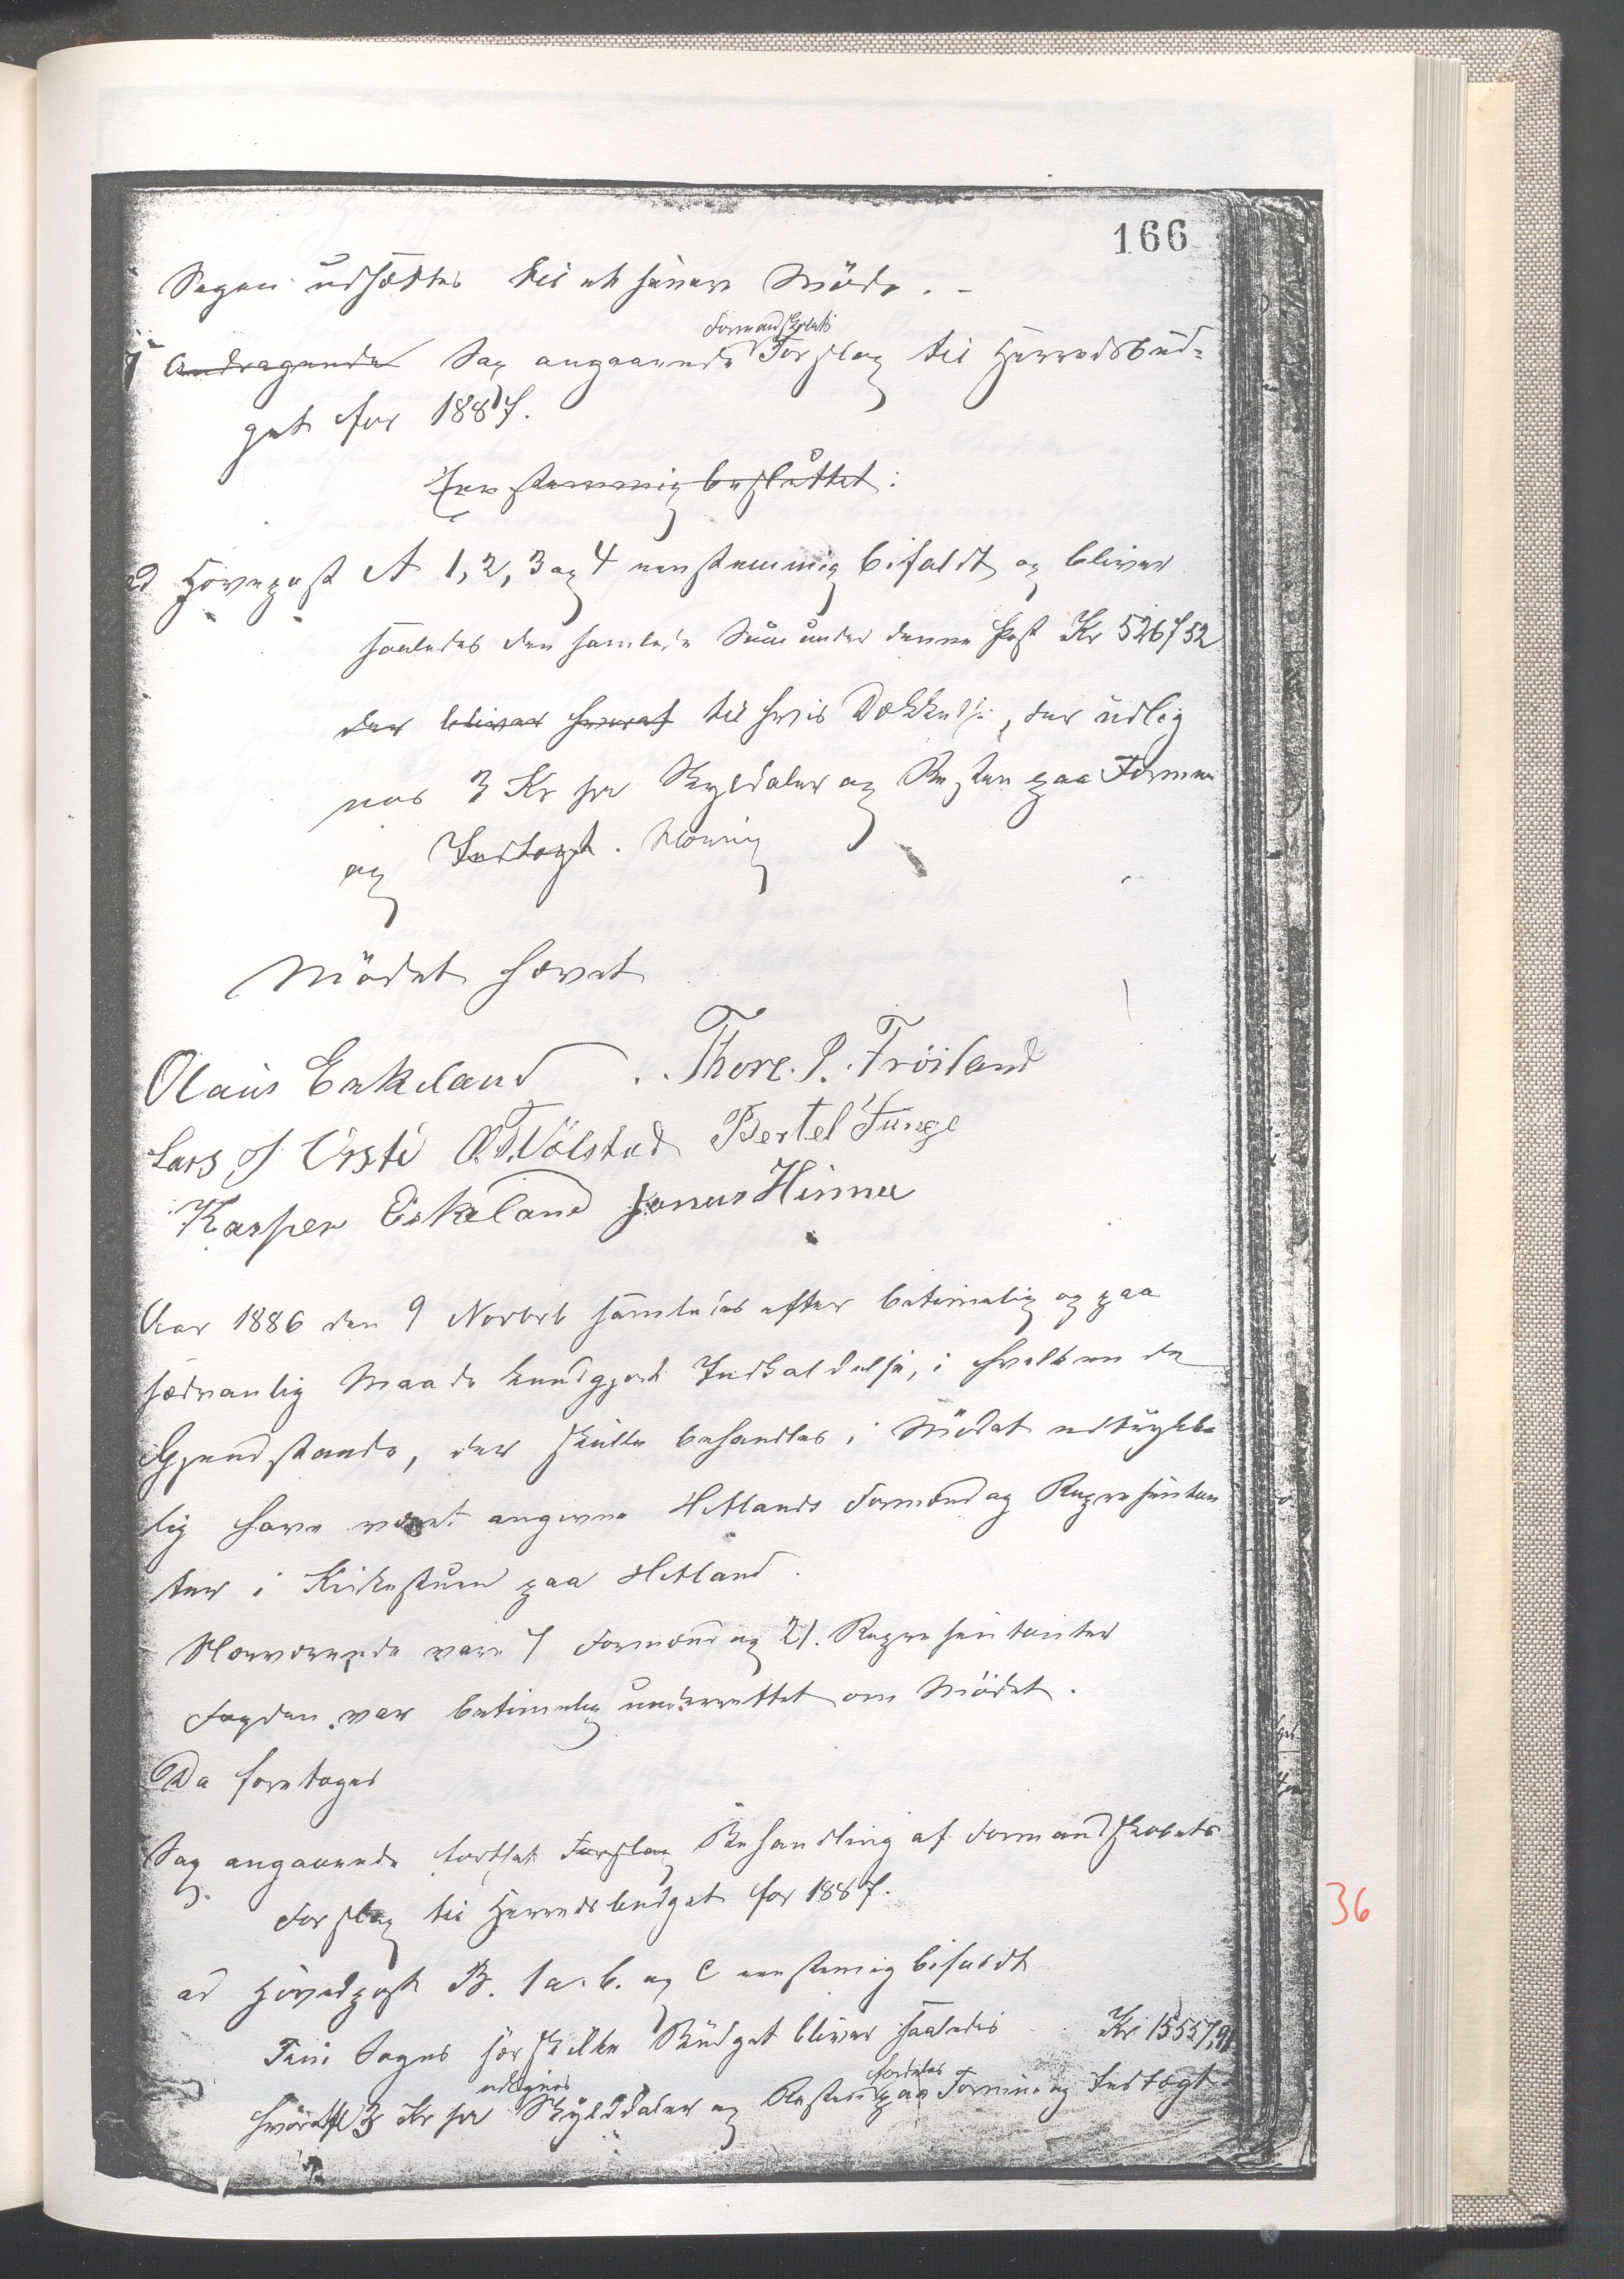 166
Sagen udsættes til et senere Møde. -
Formandskabets
Andragende Sag angaaende Forslag til Herredsbud-
get for 1887.
Eenstemmig besluttet:
ad Hovepost A 1, 2, 3 og 4 eenstemmig bifaldt og bliver
saaledes den samlede Sum under denne Post Kr 5267 52
der bliver hvoraf til hvis Dækkelse, der udlig
nes 3 Kr pr Skyldaler og Resten paa Formue
og Indtægt. Næring
Mödet hævet
Olaus Eskeland . . Thore. P. Fröiland
Lars J Ersti O. T. Völstad Bertel Tunge
Kasper Eskeland Jonas Hinna
Aar 1886 den 9 Novbrb samledes efter betimelig og paa
sædvanlig Maade kundgjort Indkaldelse, i hvilken de
Gjenstande, der skulle behandles i Mödet udtrykke
lig have været angivne Hetlands Formænd og Repræsentan
ter i Kirkestuen paa Hetland.
Nærværende vare 7 Formænd og 21. Repræsentanter
Fogden var betimelig underrettet om Mödet.
Da foretoges
Sag angaaende fortsat Forslag Behandling af Formandskabets
Forslag til Herredsbudget for 1887.
36
ad Hovedpost B. 1 a. b. og c eenstemig bifaldt
Sogns særskilte Budget bliver saaledes Kr 15557,91
udlignes fordeles
hvoraf 3 Kr pr Skylddaler og Resten paa Formue og Indtægt